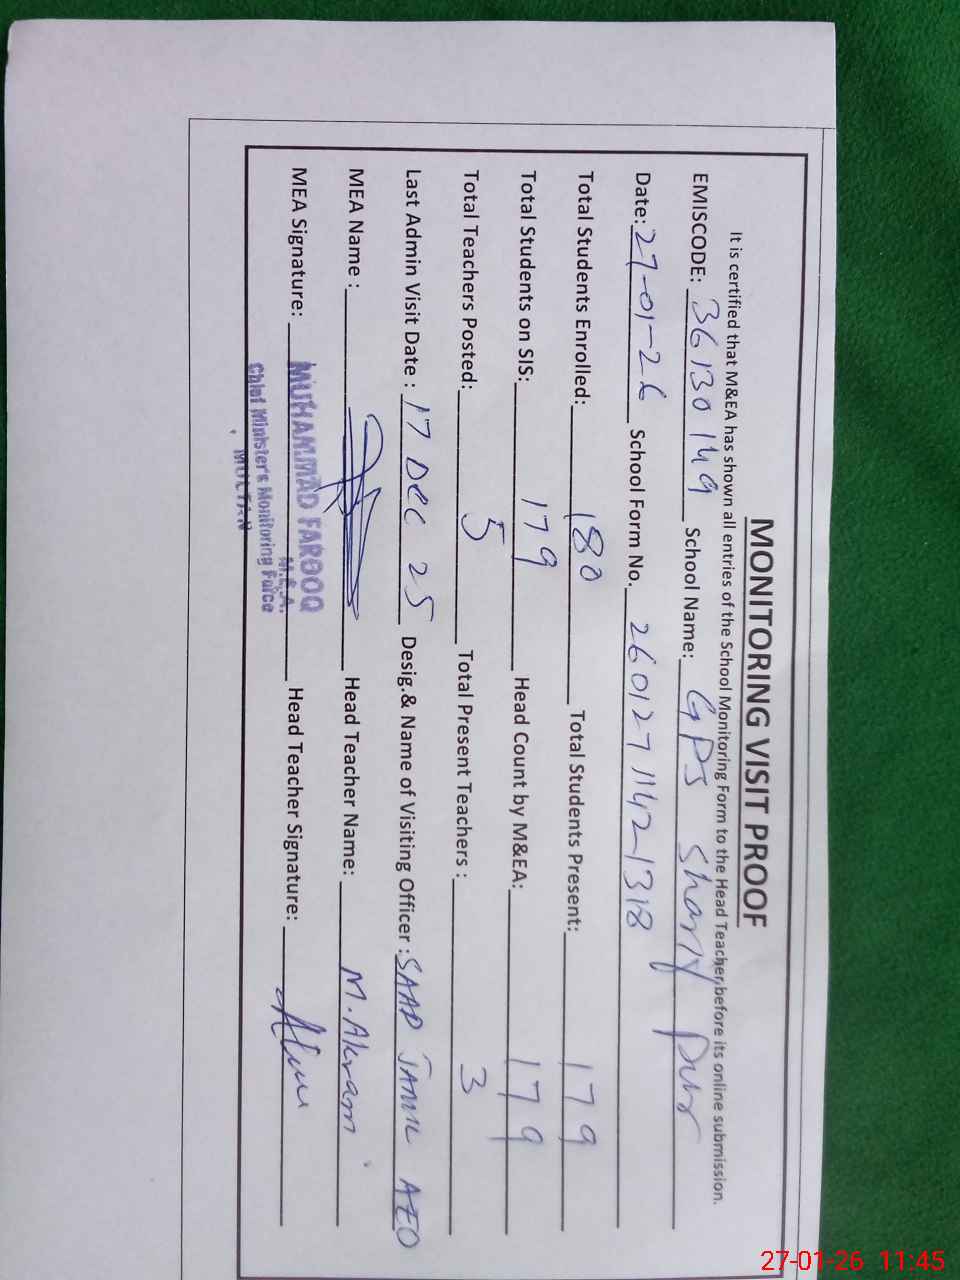 MONITORING VISIT PROOF
It is certified that M&EA has shown all entries of the School Monitoring Form to the Head Teacher, before its online submission.
EMISCODE: 36130149 School Name: GPS Sharif pur
Date: 27-01-26 School Form No. 260127 1142-1318
Total Students Enrolled: 180 Total Students Present: 179
Total Students on SIS: 179 Head Count by M&EA: 179
Total Teachers Posted: 5 Total Present Teachers : 3
Last Admin Visit Date : 17 Dec 25 Desig.& Name of Visiting Officer : SAAD JAMIL AEO
MEA Name : Head Teacher Name: M. Akram
MEA Signature: Head Teacher Signature:
MUHAMMAD FAROOQ
M.E.A.
Chief Minister's Monitoring Force
MULTAN
27-01-26 11:45